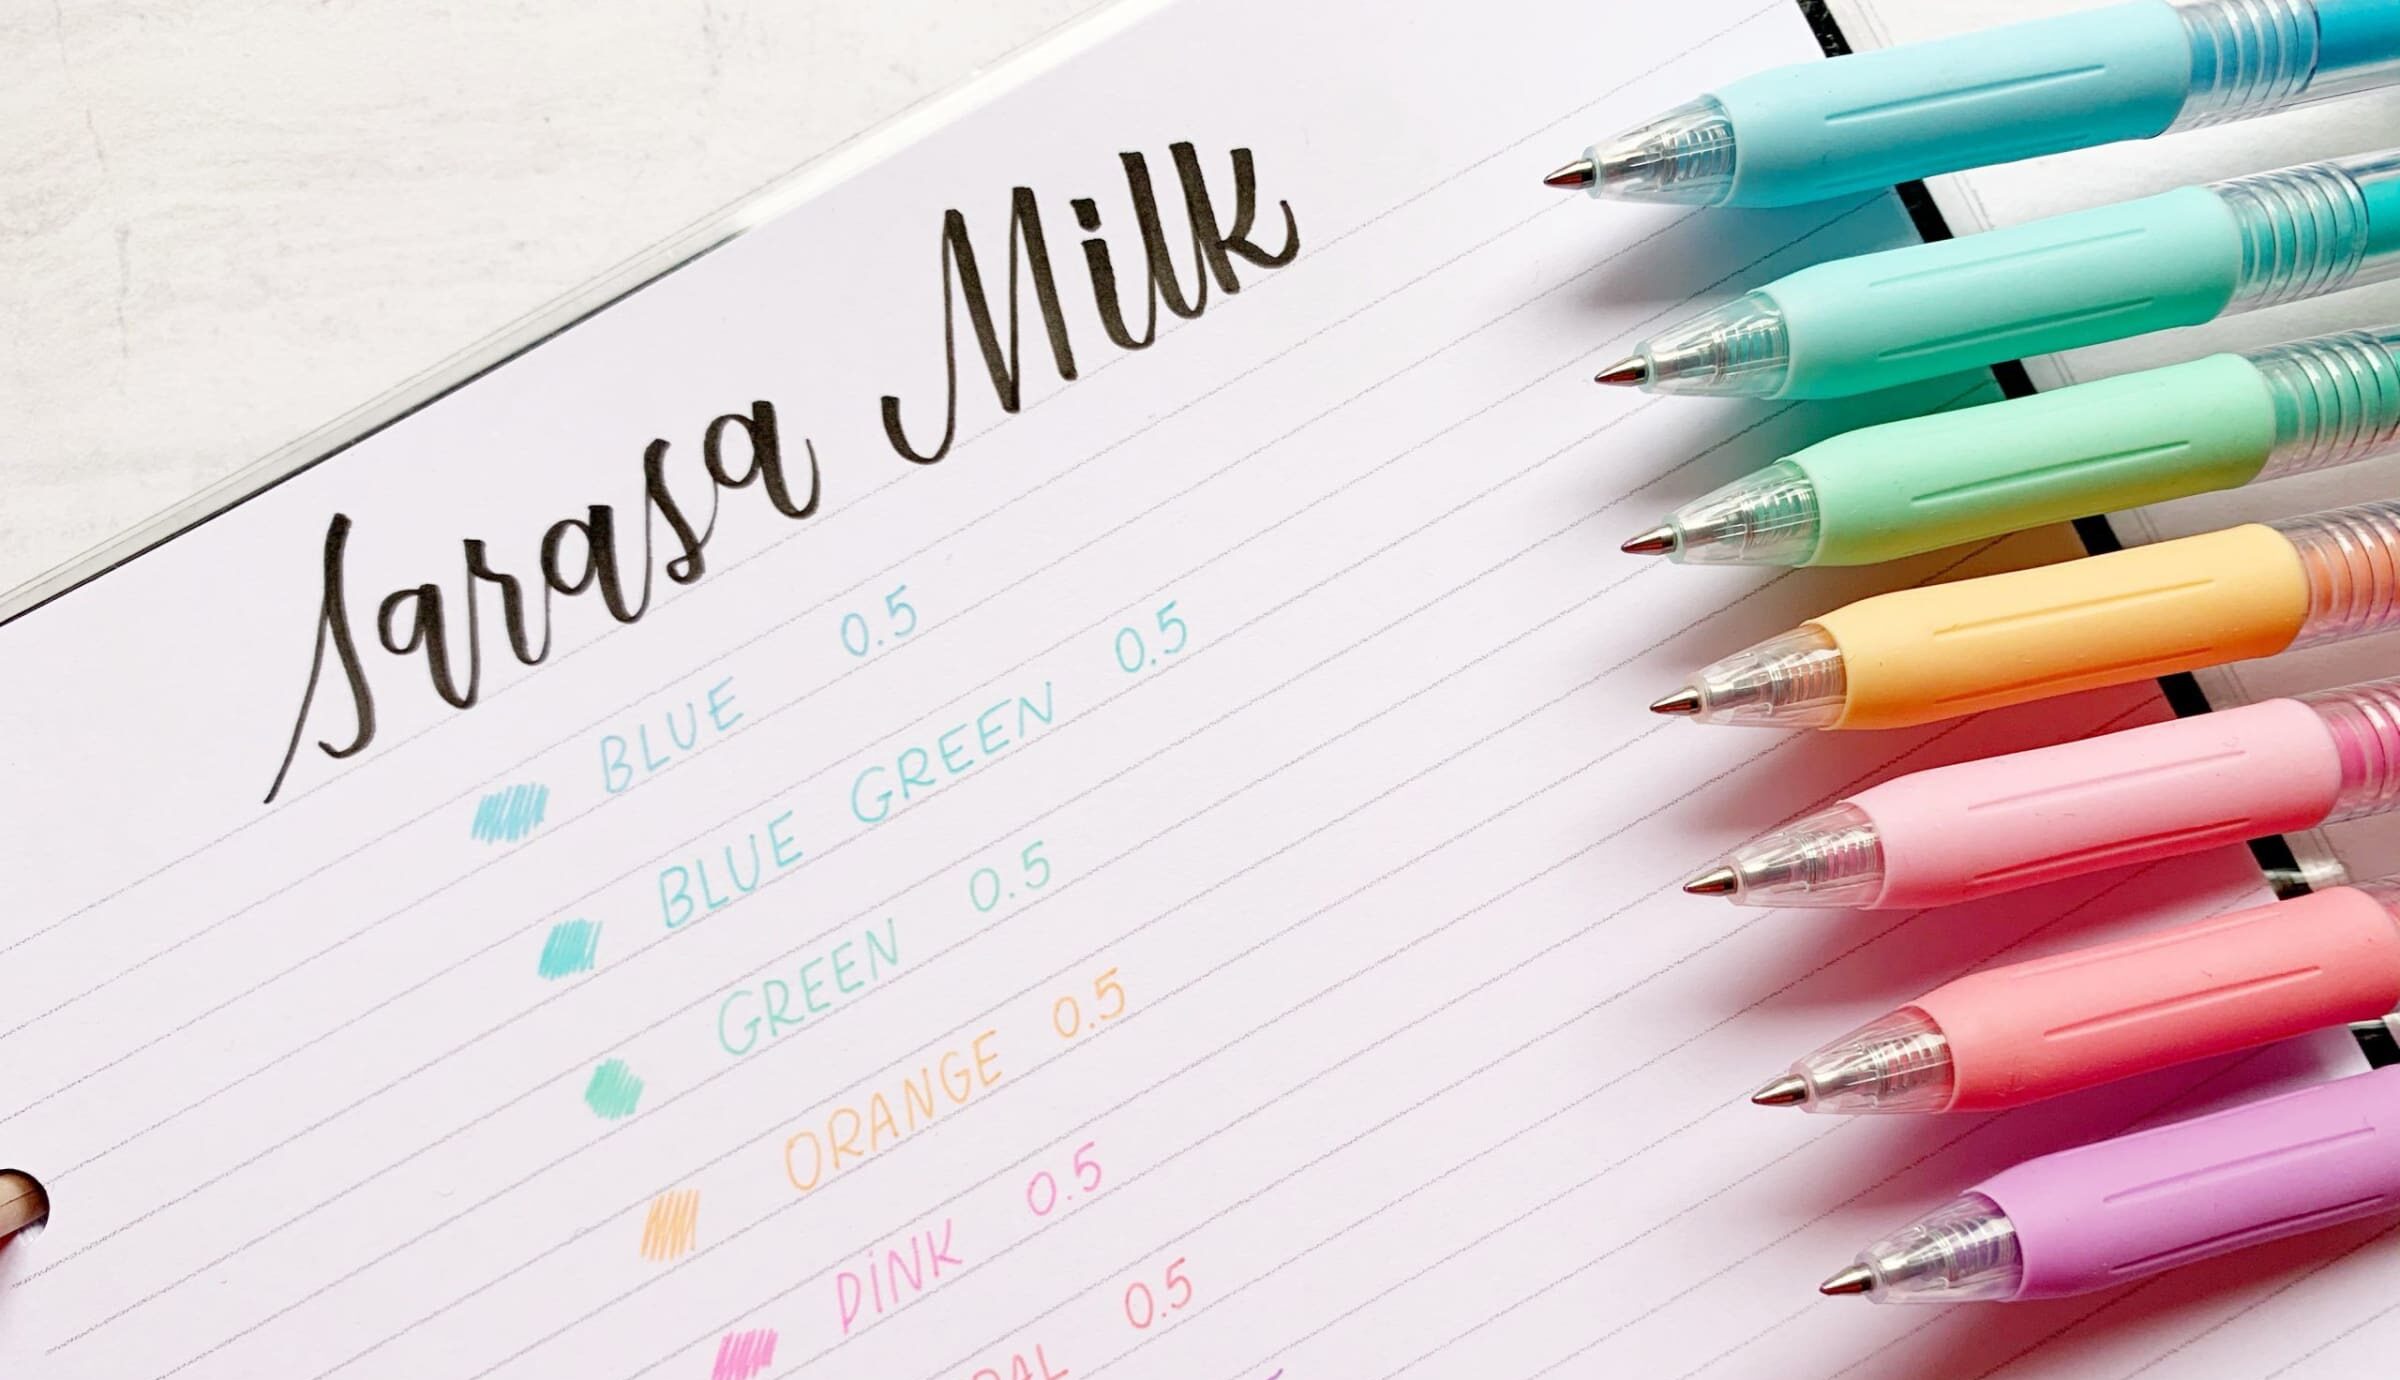 Sarasa Milk
BLUE 0.5
BLUE GREEN 0.5
GREEN 0.5
ORANGE 0.5
PiNK 0.5
0.5